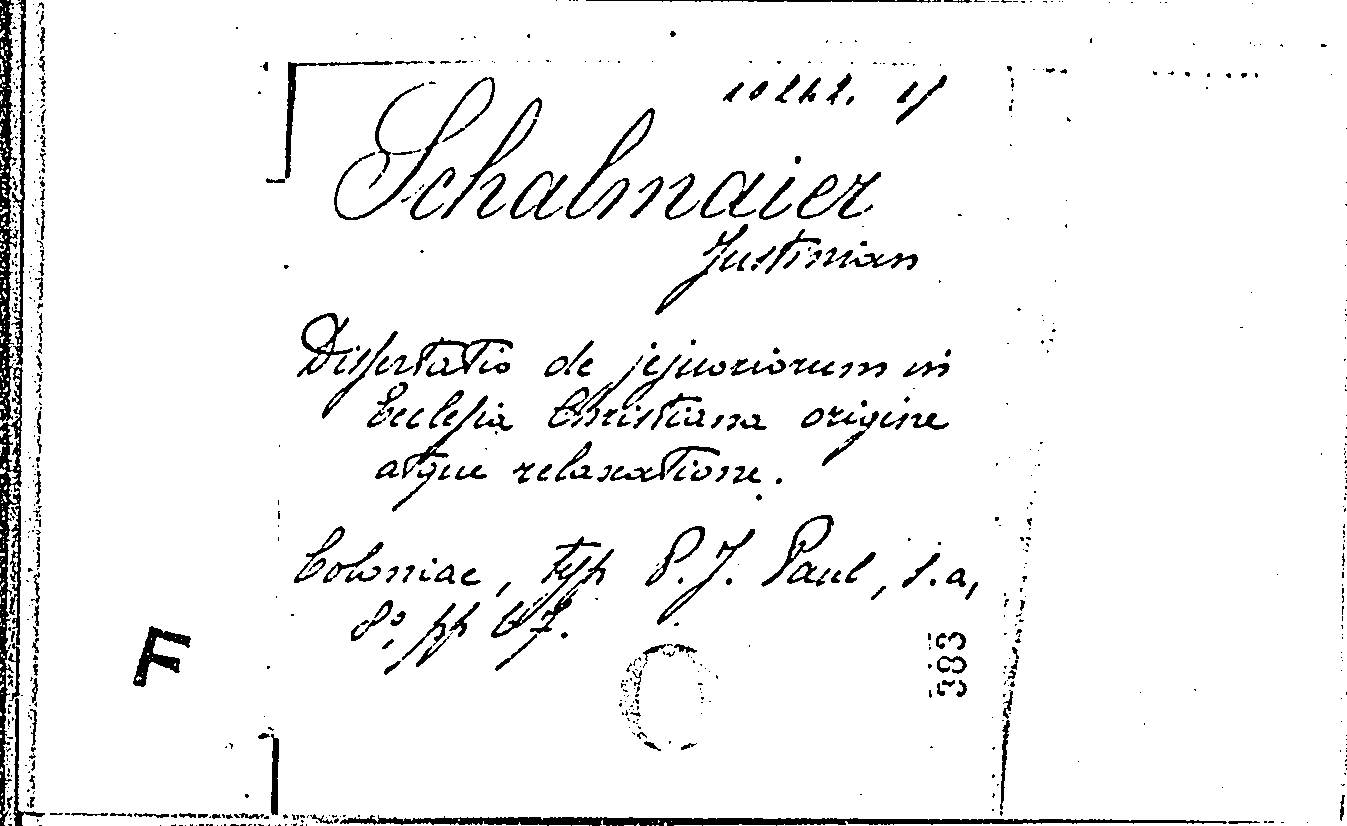 10242. 4/
Schalmaier
Justinian
Dissertatio de jejuniorum in
Ecclesia Christiana origine
atque relaxatione.
Coloniae, typ P. J. Paul, s.a,
8°, pp 67.
F
383